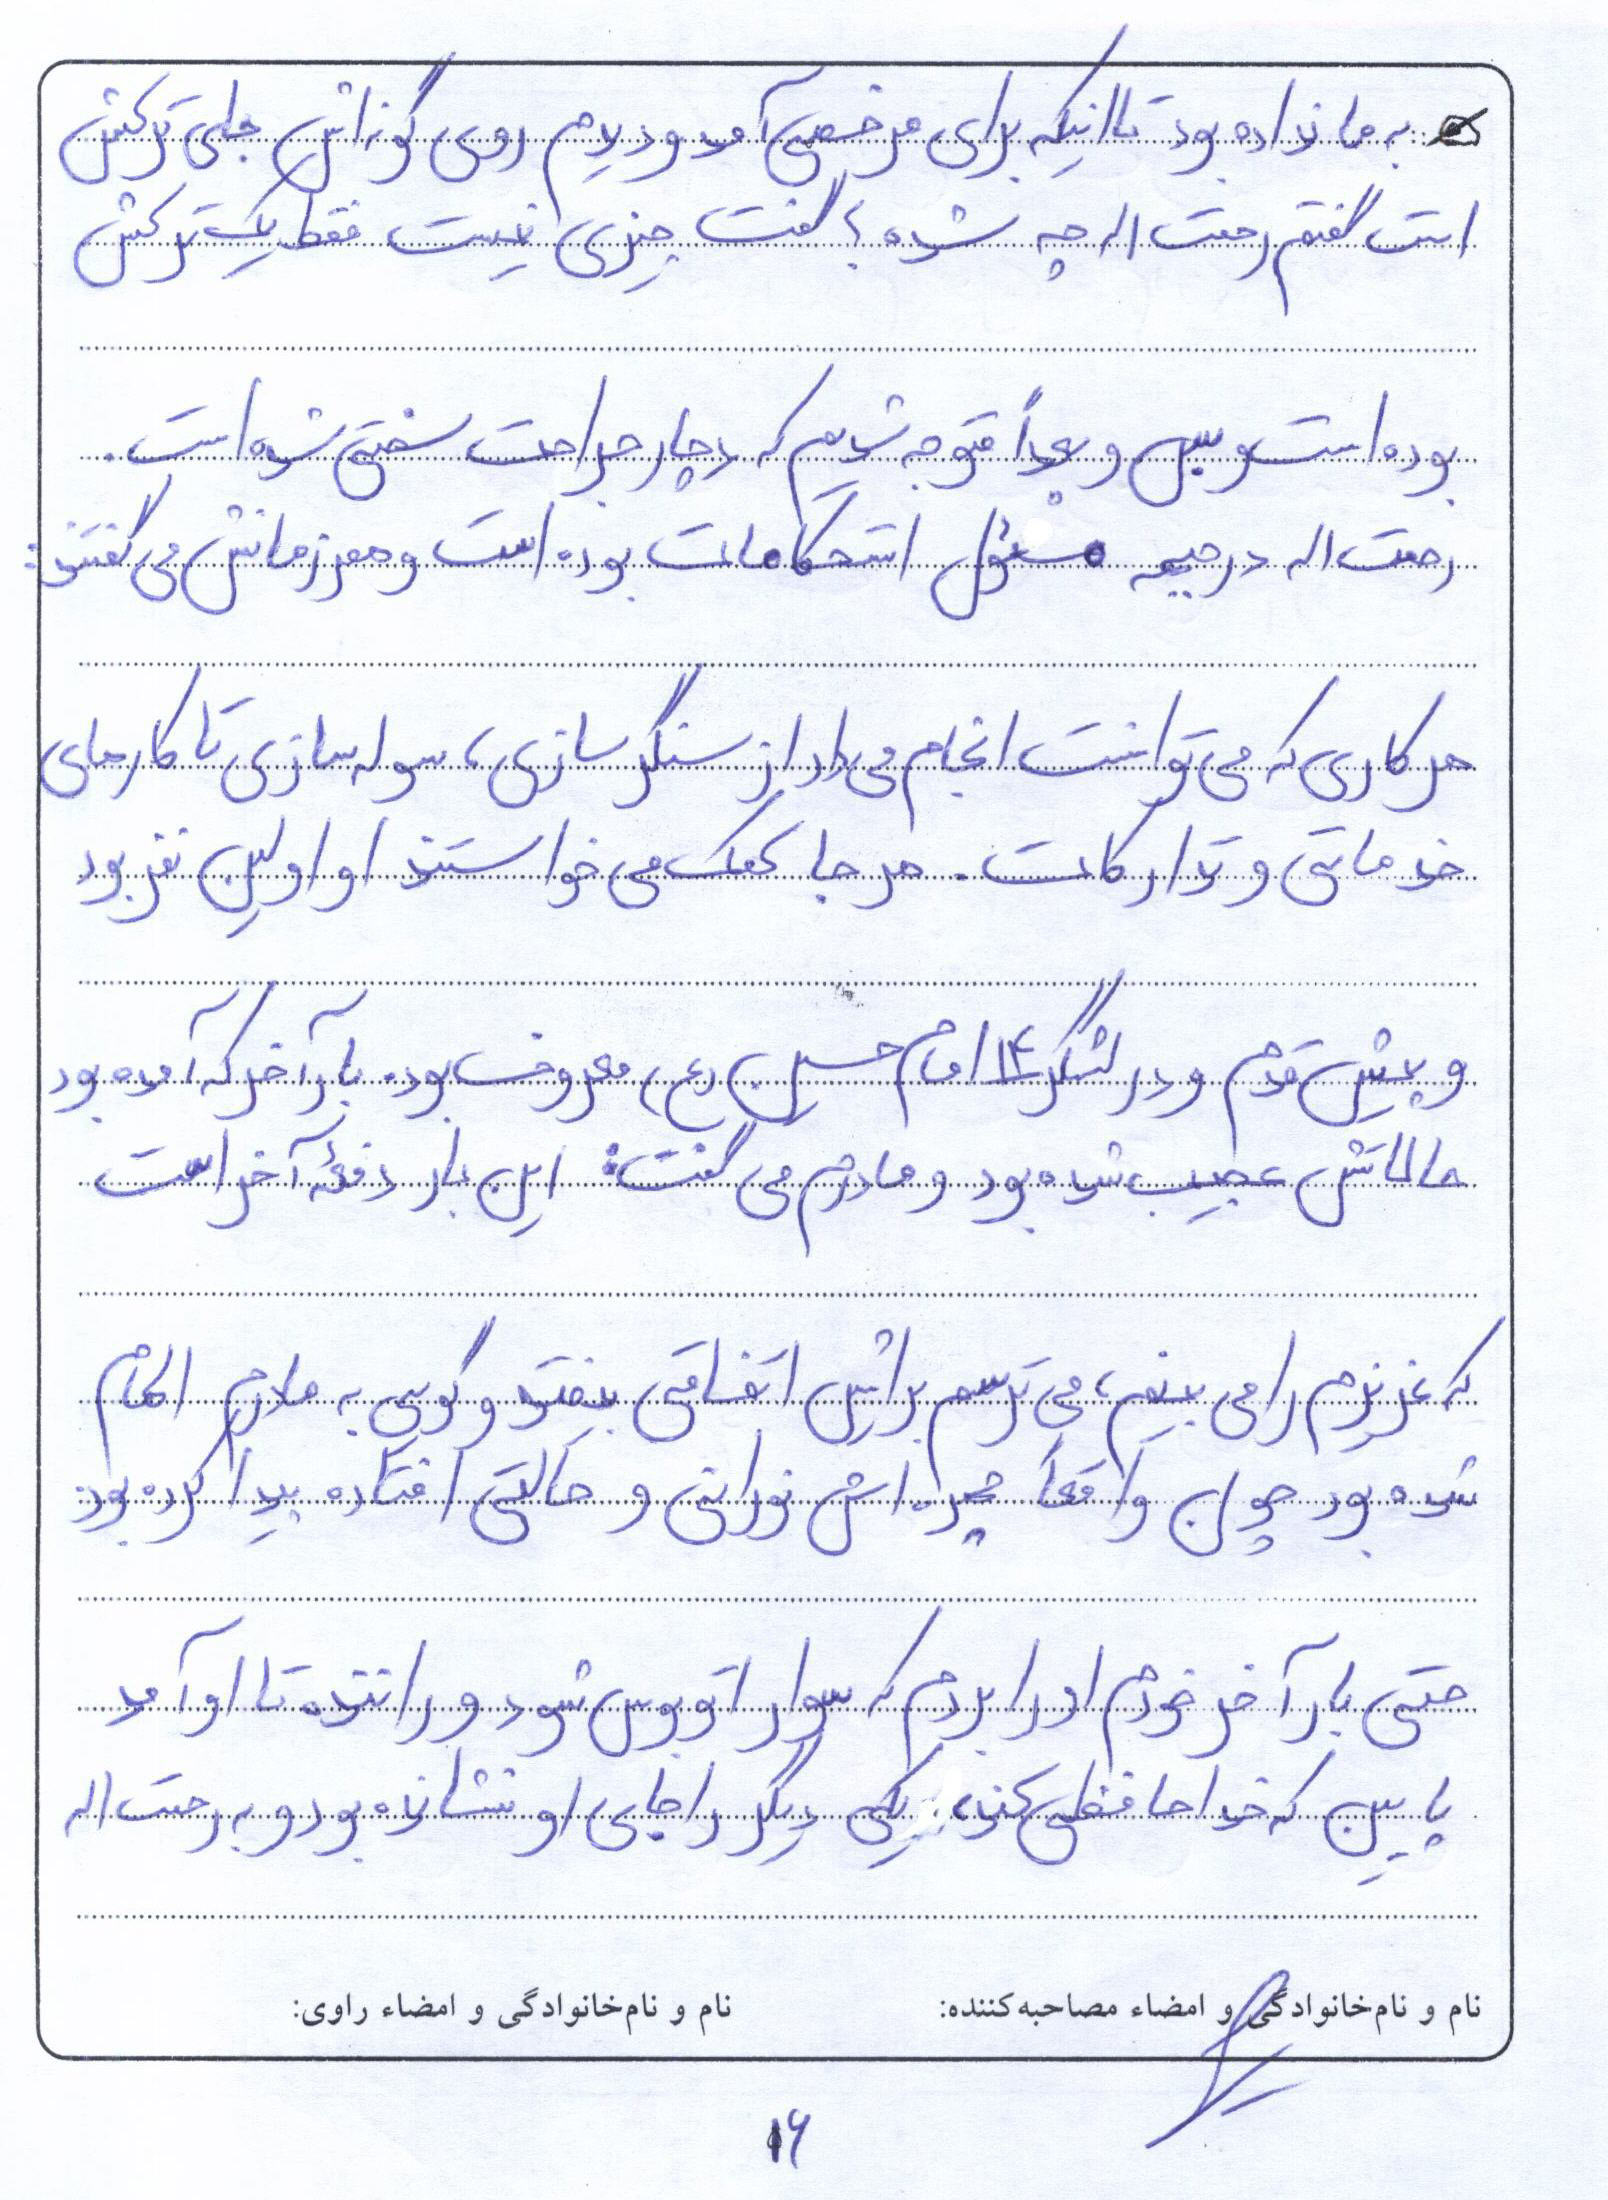 به ما نداده بود تا اینکه برای مرخصی آمد و دیدم روی گونه اش جای ترکش
است گفتم رحمت اله چه شده؟ گفت چیزی نیست فقط یک ترکش
بوده است و بس و بعداً متوجه شدیم که دچار جراحت سختی شده است.
رحمت اله در جبهه مسئول استحکامات بوده است و همرزمانش می گفتند:
هر کاری که می توانست انجام می داد از سنگر سازی، سوله سازی تا کارهای
خدماتی و تدارکات. هر جا کمک می خواستند او اولین نفر بود
و پیش قدم و در لشگر ۱۴ امام حسین (ع) معروف بود. بار آخر که آمده بود
حالاتش عجیب شده بود و مادرم می گفت: این بار دفعهٔ آخر است
که عزیزم را می بینم، می ترسم برایش اتفاقی بیفتد و گویی به مادرم الهام
شده بود چون واقعاً چهره اش نورانی و حالتی افتاده پیدا کرده بود
حتی بار آخر خودم او را بردم که سوار اتوبوس شود و راننده تا او آمد
پایین که خداحافظی کند، یکی دیگر را جای او نشانده بود و به رحمت اله
نام و نام‌خانوادگی و امضاء مصاحبه‌کننده: نام و نام‌خانوادگی و امضاء راوی:
۱۶